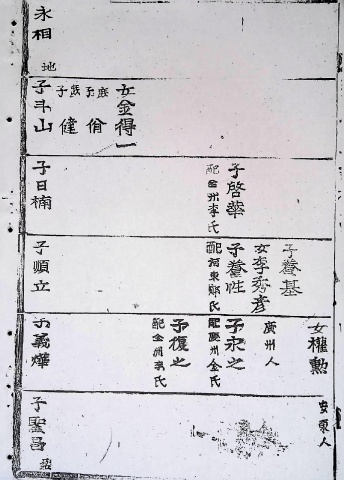 永相
地
女金得一
庶子
庶子
子斗山
子啓華
配全州李氏
子日楠
子養基
女李秀彦
子養性
配河東鄭氏
子順立
女權勲
廣州人
子永之
配慶州金氏
子復之
配全州李氏
子義燁
安東人
子聖昌